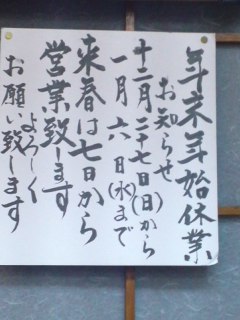 年末年始休業
お知らせ
十二月二十七日(日)から
一月六日(水)まで
来春は七日から
営業致します
よろしく
お願い致します